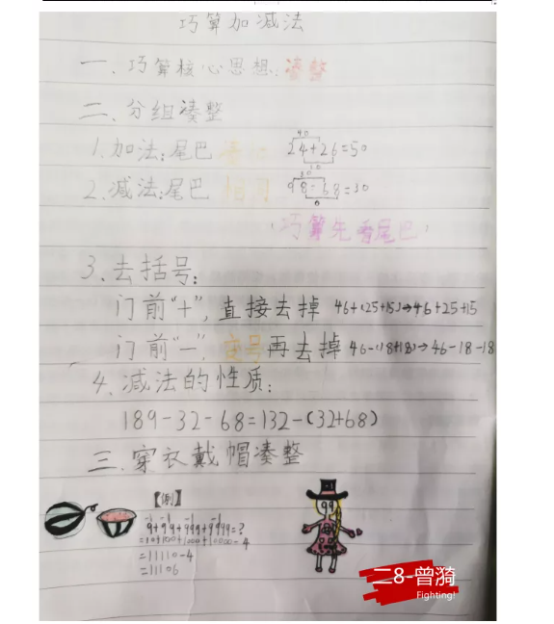 巧算加减法
一、巧算核心思想:凑整
二、分组凑整
1.加法:尾巴
40
24+26=50
10
2.减法:尾巴
30
98-68=30
0
巧算先看尾巴
3.去括号:
门前"+",直接去掉 46+(25+15)→46+25+15
门前"-",变号再去掉 46-(18+18)→46-18-18
4.减法的性质:
189-32-68=132-(32+68)
三.穿衣戴帽凑整
【例】
-1 -1 -1 -1
9+99+999+9999=?
=10+100+1000+10000-4
=11110-4
=11106
99
二8-曾漪
Fighting!